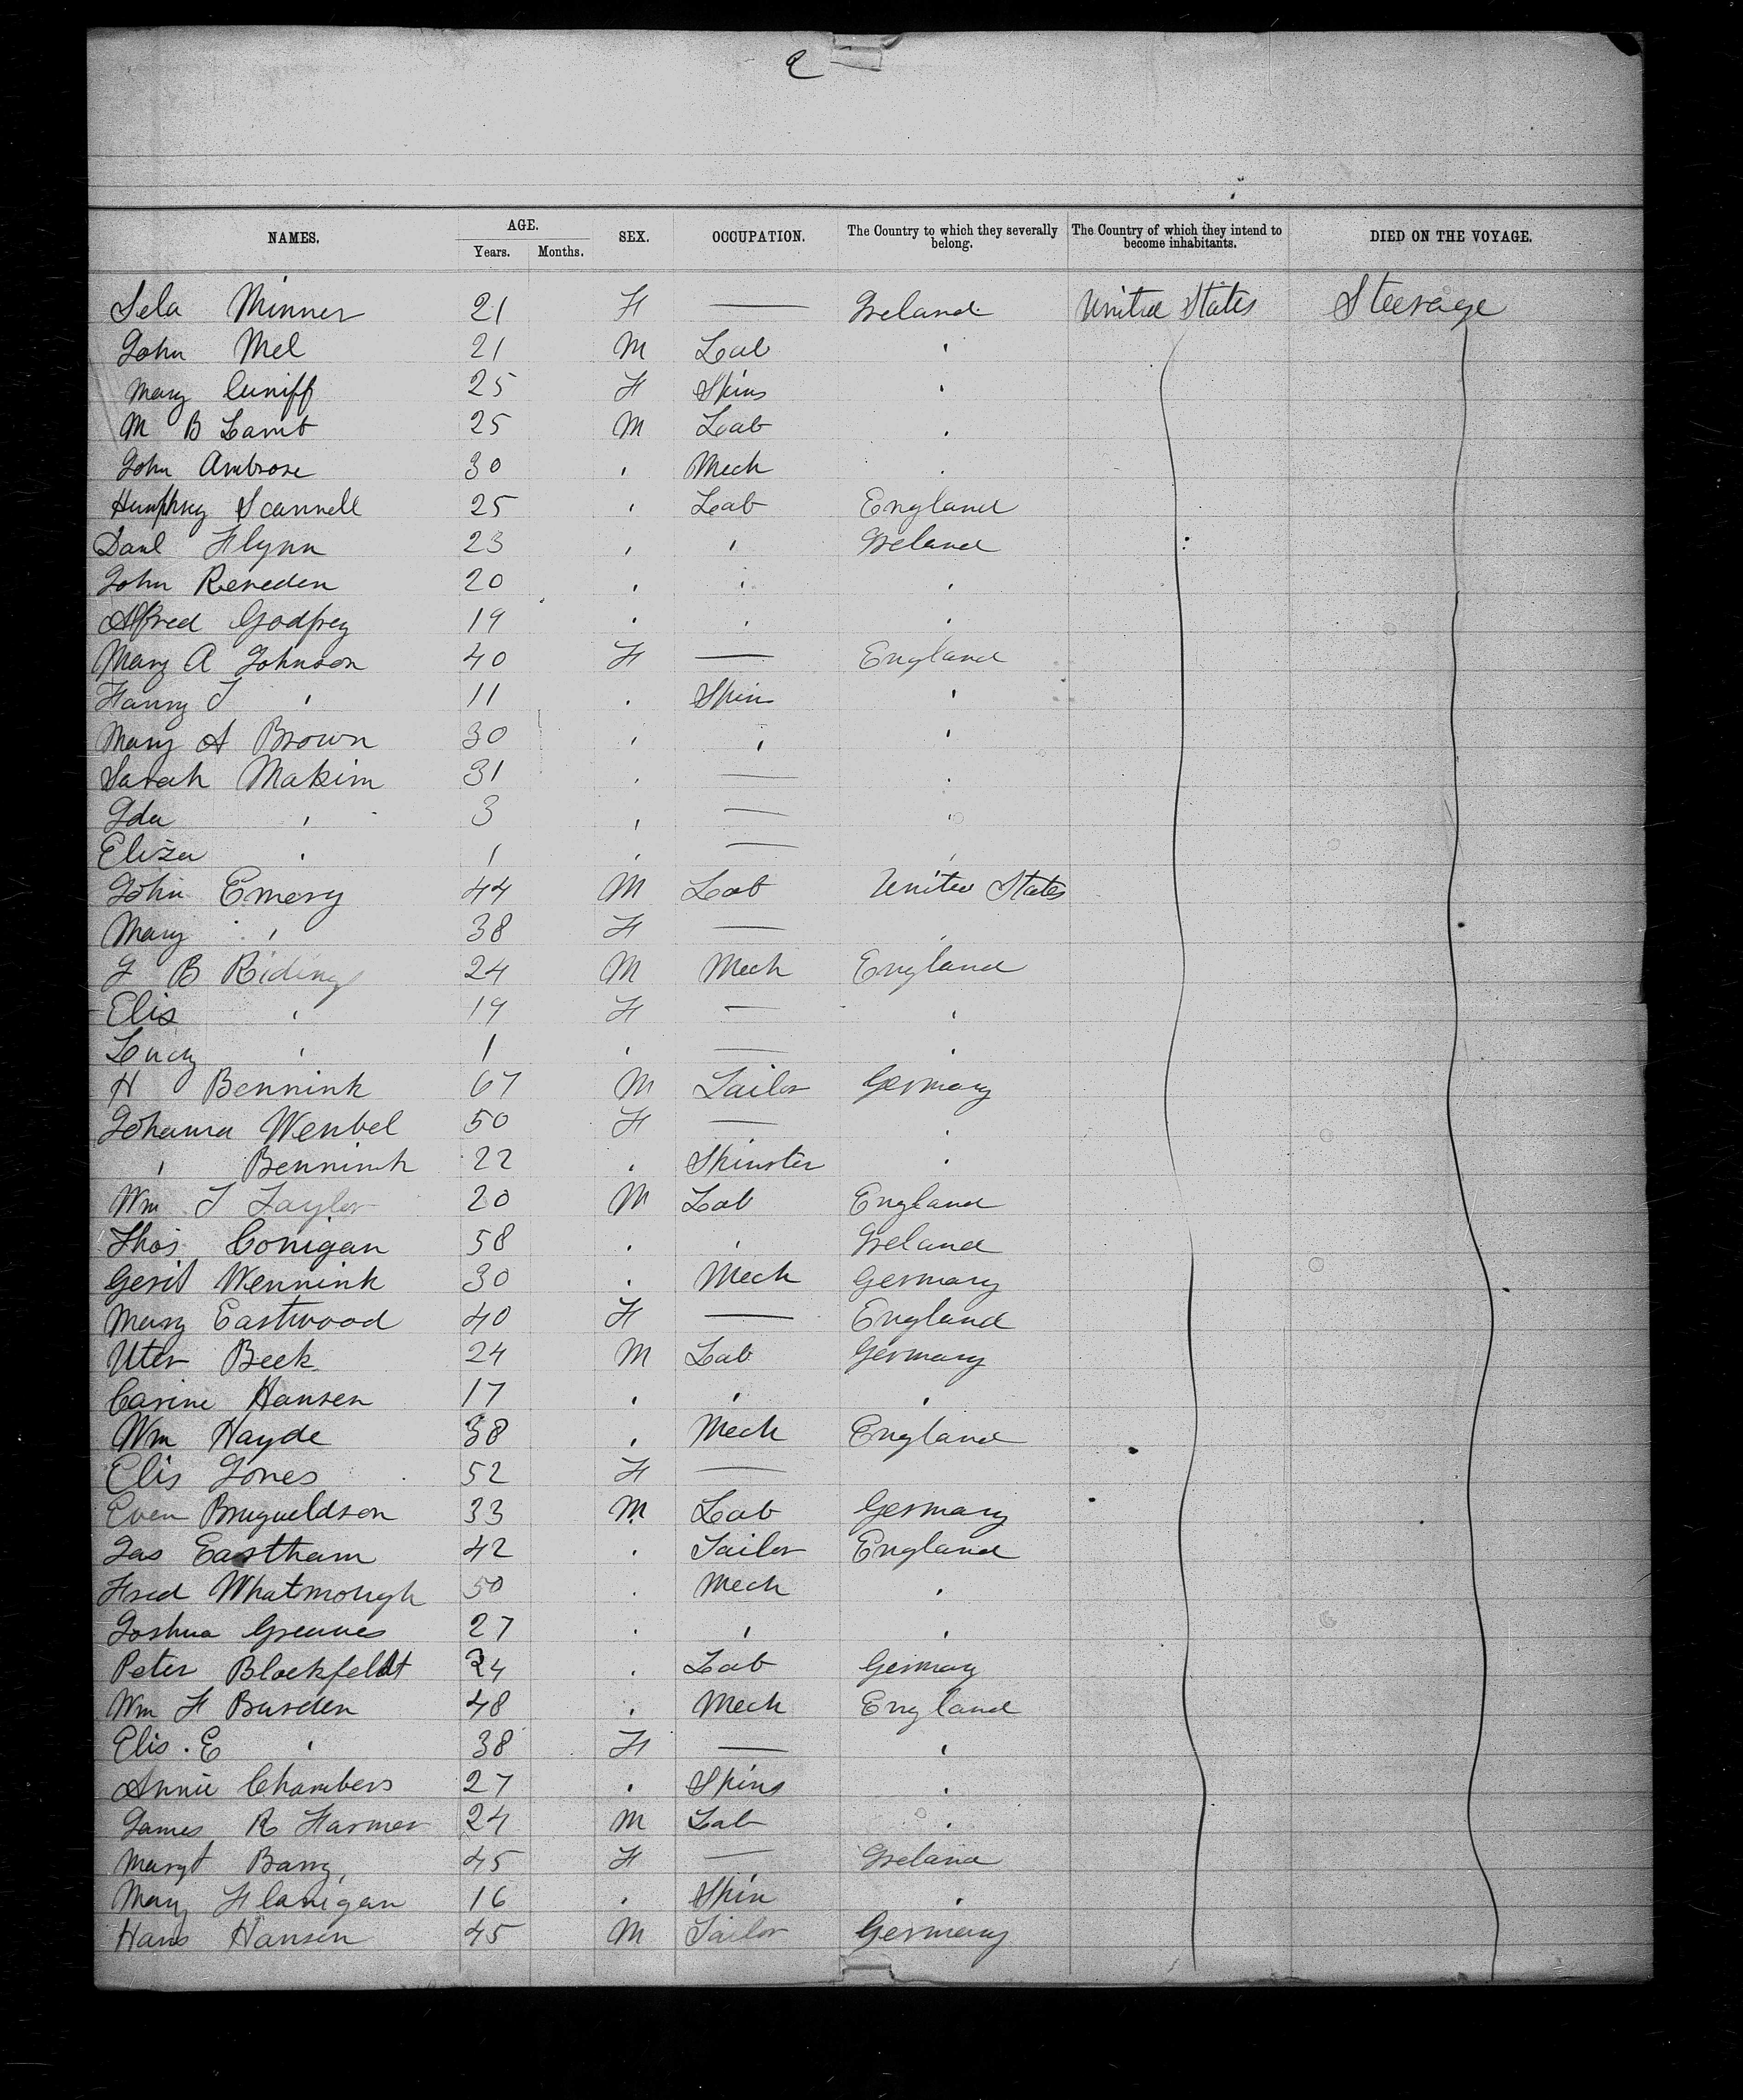 2
NAMES. AGE. SEX. OCCUPATION. The Country to which they severally belong. The Country of which they intend to become inhabitants. DIED ON THE VOYAGE.
Years. Months.
Sela Minner 21 F — Ireland United States Steerage
John Mel 21 M Lab "
Mary Cuniff 25 F Spins "
M B Lamb 25 M Lab "
John Ambrose 30 " Mech "
Humphrey Scannell 25 " Lab England
Danl Flynn 23 " " Ireland
John Reneden 20 " " "
Alfred Godfrey 19 " " "
Mary A Johnson 40 F — England
Fanny J " 11 " Spin "
Mary A Brown 30 " " "
Sarah Makim 31 " — "
Ida " 3 " — "
Eliza " 1 " — "
John Emery 44 M Lab United States
Mary " 38 F — "
J B Riding 24 M Mech England
Elis " 19 F — "
Lucy " 1 " — "
H Bennink 67 M Tailor Germany
Johanna Wenbel 50 F — "
" Bennink 22 " Spinster "
Wm J Taylor 20 M Lab England
Thos Conigan 58 " " Ireland
Gerit Wennink 30 " Mech Germany
Mary Eastwood 40 F — England
Uter Beek 24 M Lab Germany
Carine Hansen 17 " " "
Wm Hayde 38 " Mech England
Elis Jones 52 F —
Even 33 M Lab Germany
Jas Eastham 42 " Tailor England
Fred Whatmough 50 " Mech "
Joshua Greaves 27 " " "
Peter Blockfeldt 24 " Lab Germany
Wm H Burden 48 " Mech England
Elis . E " 38 F — "
Annie Chambers 27 " Spins "
James R Farmer 24 M Lab "
Margt Barry 45 F — Ireland
Mary Flanigan 16 " Spin "
Hans Hansen 45 M Tailor Germany